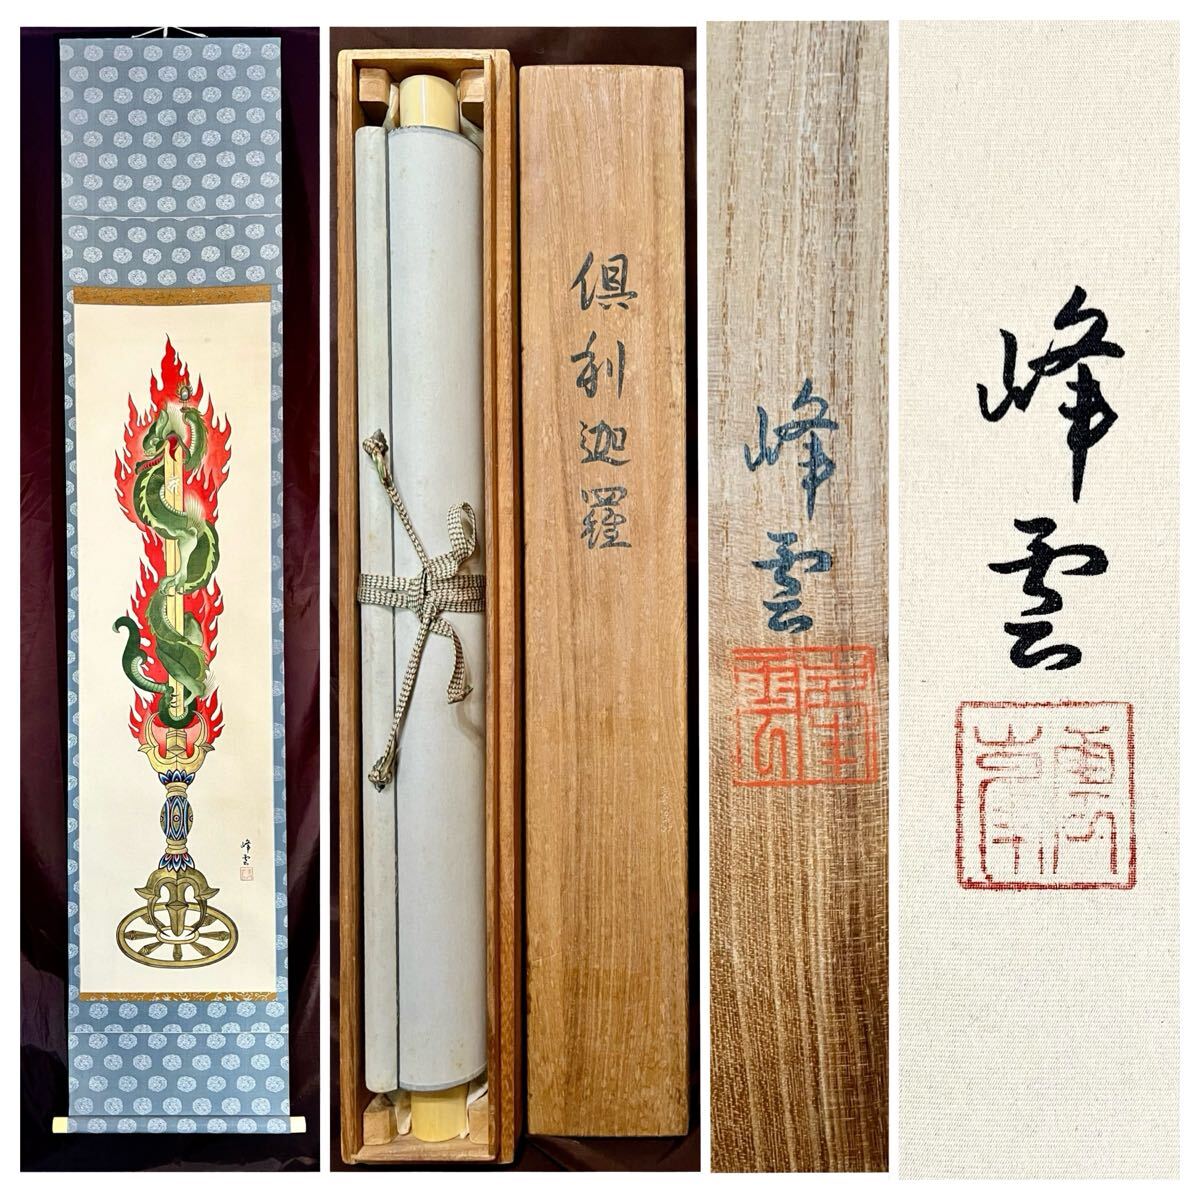 峰雲
倶利迦羅
峰雲
峰雲